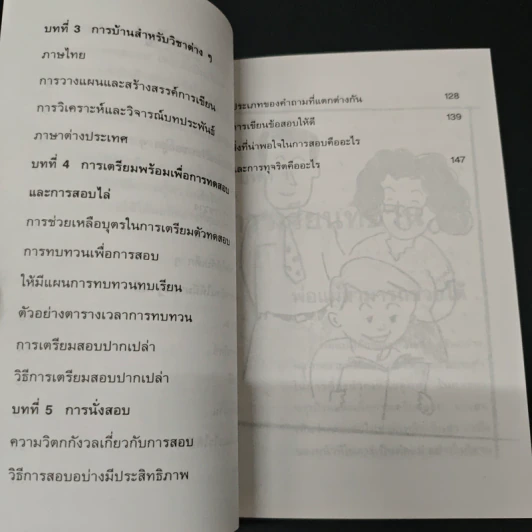 บทที่ 3 การบ้านสำหรับวิชาต่าง ๆ
ภาษาไทย
การวางแผนและสร้างสรรค์การเขียน
การวิเคราะห์และวิจารณ์บทประพันธ์
ภาษาต่างประเทศ
บทที่ 4 การเตรียมพร้อมเพื่อการทดสอบ
และการสอบไล่
การช่วยเหลือบุตรในการเตรียมตัวทดสอบ
การทบทวนเพื่อการสอบ
ให้มีแผนการทบทวนทบเรียน
ตัวอย่างตารางเวลาการทบทวน
การเตรียมสอบปากเปล่า
วิธีการเตรียมสอบปากเปล่า
บทที่ 5 การนั่งสอบ
ความวิตกกังวลเกี่ยวกับการสอบ
วิธีการสอบอบ่างมีประสิทธิภาพ
ประเภทของคำถามที่แตกต่างกัน 128
การเขียนข้อสอบให้ดี 139
ที่น่าพอใจในการสอบคืออะไร
และการทุจริตคืออะไร 147